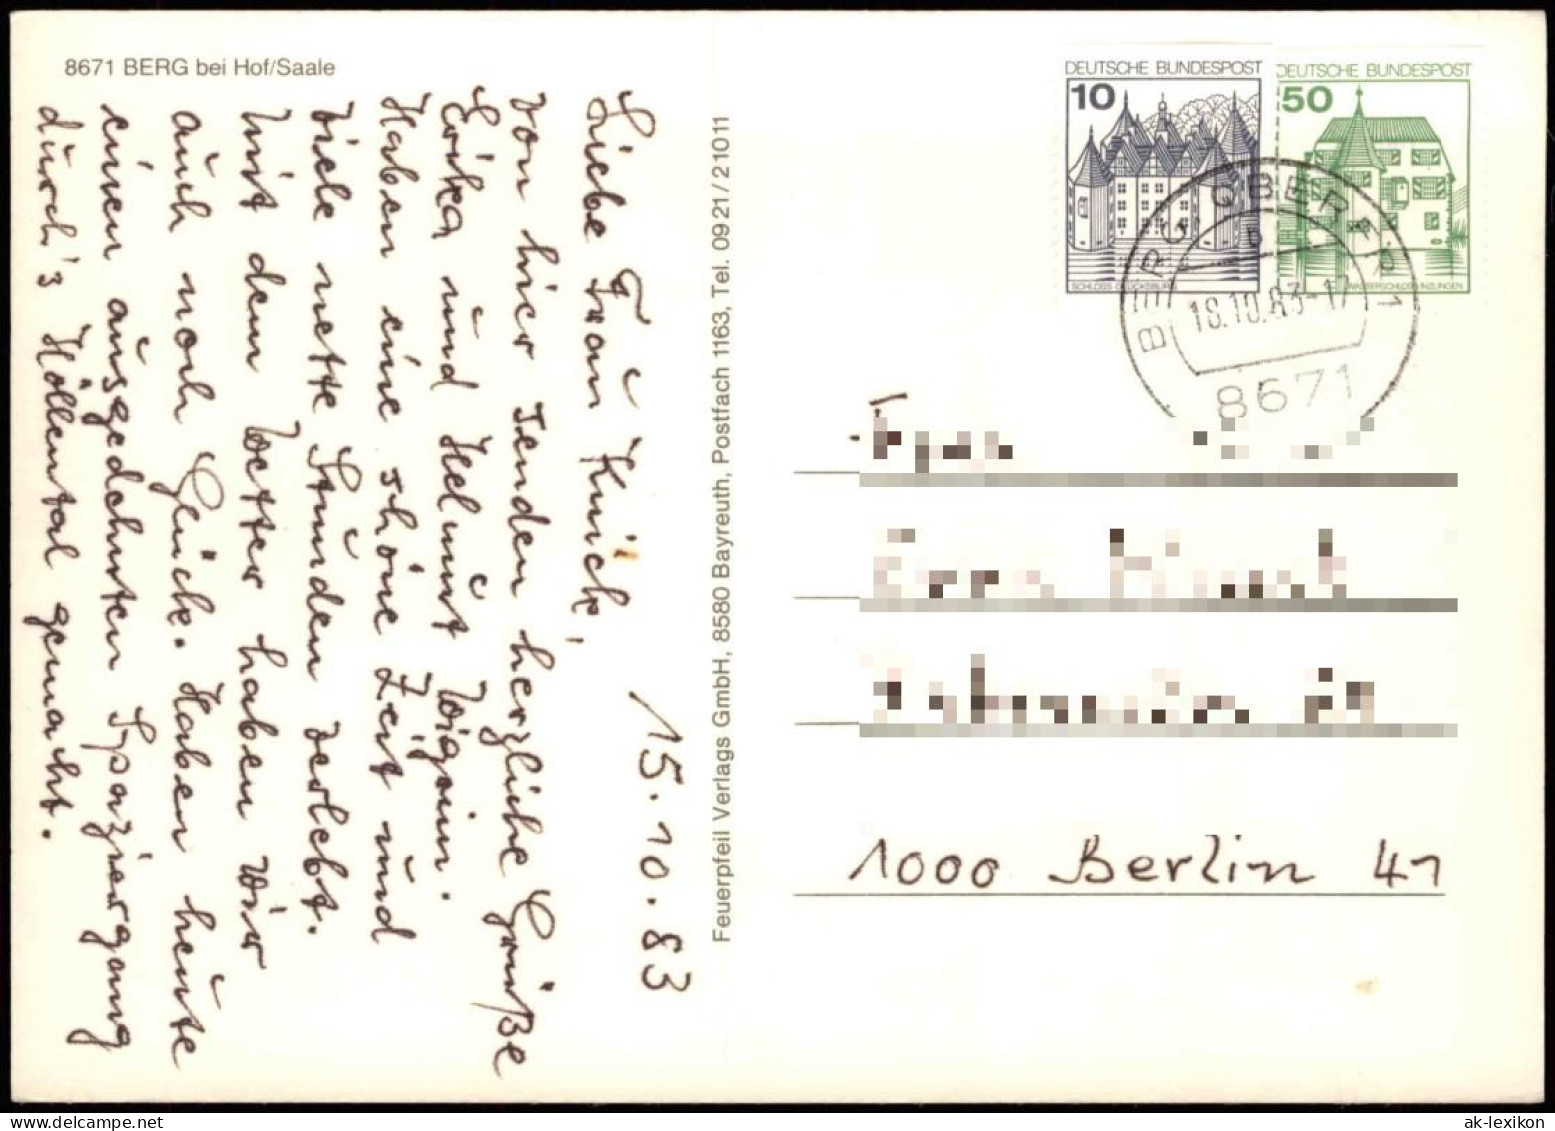 8671 BERG bei Hof/Saale
15.10.83
Liebe Frau Kuick,
von hier senden herzliche Grüße
Erika und Helmut
Haben eine schöne Zeit und
viele nette Stunden verlebt.
Mit dem Wetter haben wir
auch noch Glück. Haben heute
einen ausgedehnten Spaziergang
durch's Höllental gemacht.
Feuerpfeil Verlags GmbH, 8580 Bayreuth, Postfach 1163, Tel. 0921/21011
DEUTSCHE BUNDESPOST
10
SCHLOSS GLÜCKSBURG
DEUTSCHE BUNDESPOST
50
WASSERSCHLOSS INZLINGEN
BERG OBERFR 1
b
18.10.83-17
8671
1000 Berlin 41
ak-lexikon